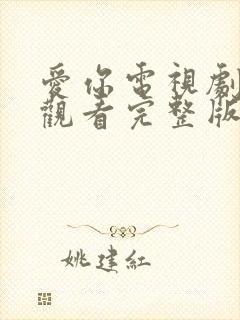 愛你電視劇
觀看完整版
姚建紅